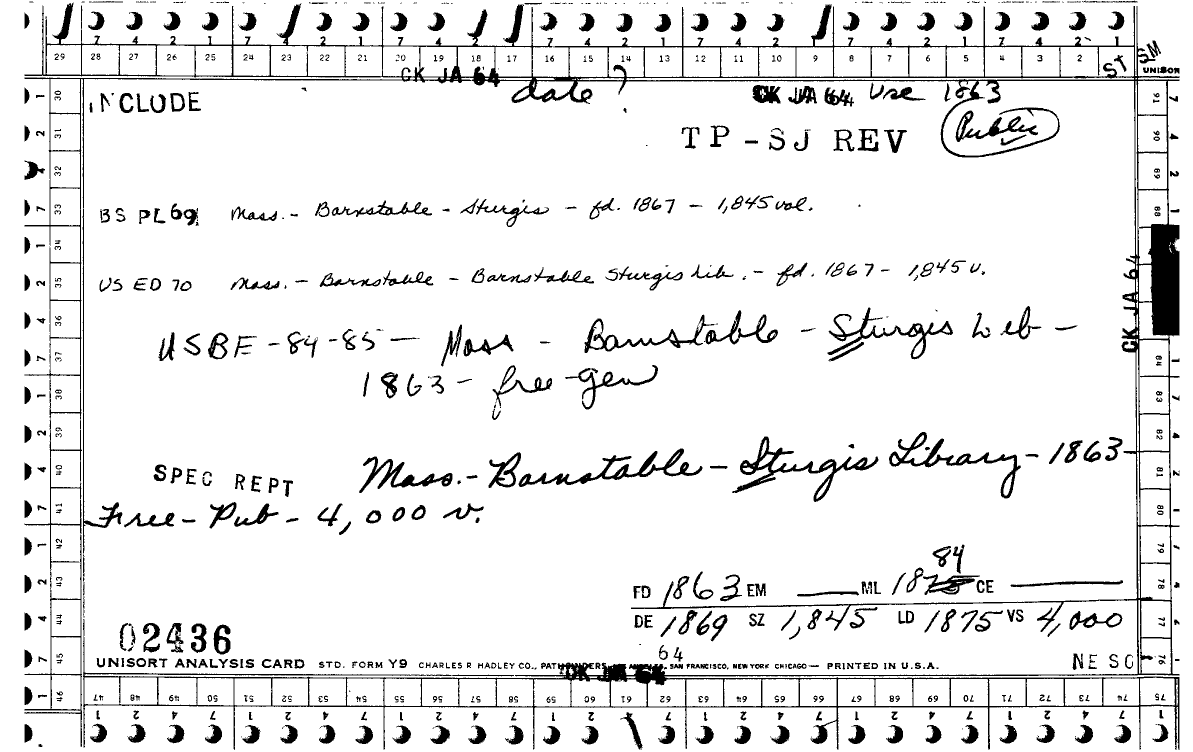 7 4 2 1 7 4 2 1 7 4 2 1 7 4 2 1 7 4 2 1 7 4 2 1 7 4 2 1
29 28 27 26 25 24 23 22 21 20 19 18 17 16 15 14 13 12 11 10 9 8 7 6 5 4 3 2 ST SM
UNISOR
CK JA 64 ?
INCLUDE date CK JA 64 Use 1863
TP-SJ REV Public
BS PL69 Mass. - Barnstable - Sturgis - fd. 1867 - 1,845 vol.
US ED 70 Mass. - Barnstable - Barnstable Sturgis Lib. - fd. 1867 - 1,845 v.
CK JA 64
USBE-84-85 - Mass - Barnstable - Sturgis Lib -
1863 - free-gen
SPEC REPT Mass. - Barnstable - Sturgis Library - 1863 -
Free - Pub - 4,000 v.
84
FD 1863 EM ML 1875 CE
DE 1869 SZ 1,845 LD 1875 VS 4,000
02436
64
UNISORT ANALYSIS CARD STD. FORM Y9 CHARLES R HADLEY CO., PATHFINDERS, LOS ANGELES, SAN FRANCISCO, NEW YORK CHICAGO — PRINTED IN U.S.A.
CK JA 64
NE SO
30 31 32 33 34 35 36 37 38 39 40 41 42 43 44 45 46
91 90 89 88 84 83 82 81 80 79 78 77 76
47 48 49 50 51 52 53 54 55 56 57 58 59 60 61 62 63 64 65 66 67 68 69 70 71 72 73 74 75
1 2 4 7 1 2 4 7 1 2 4 7 1 2 4 7 1 2 4 7 1 2 4 7 1 2 4 7 1